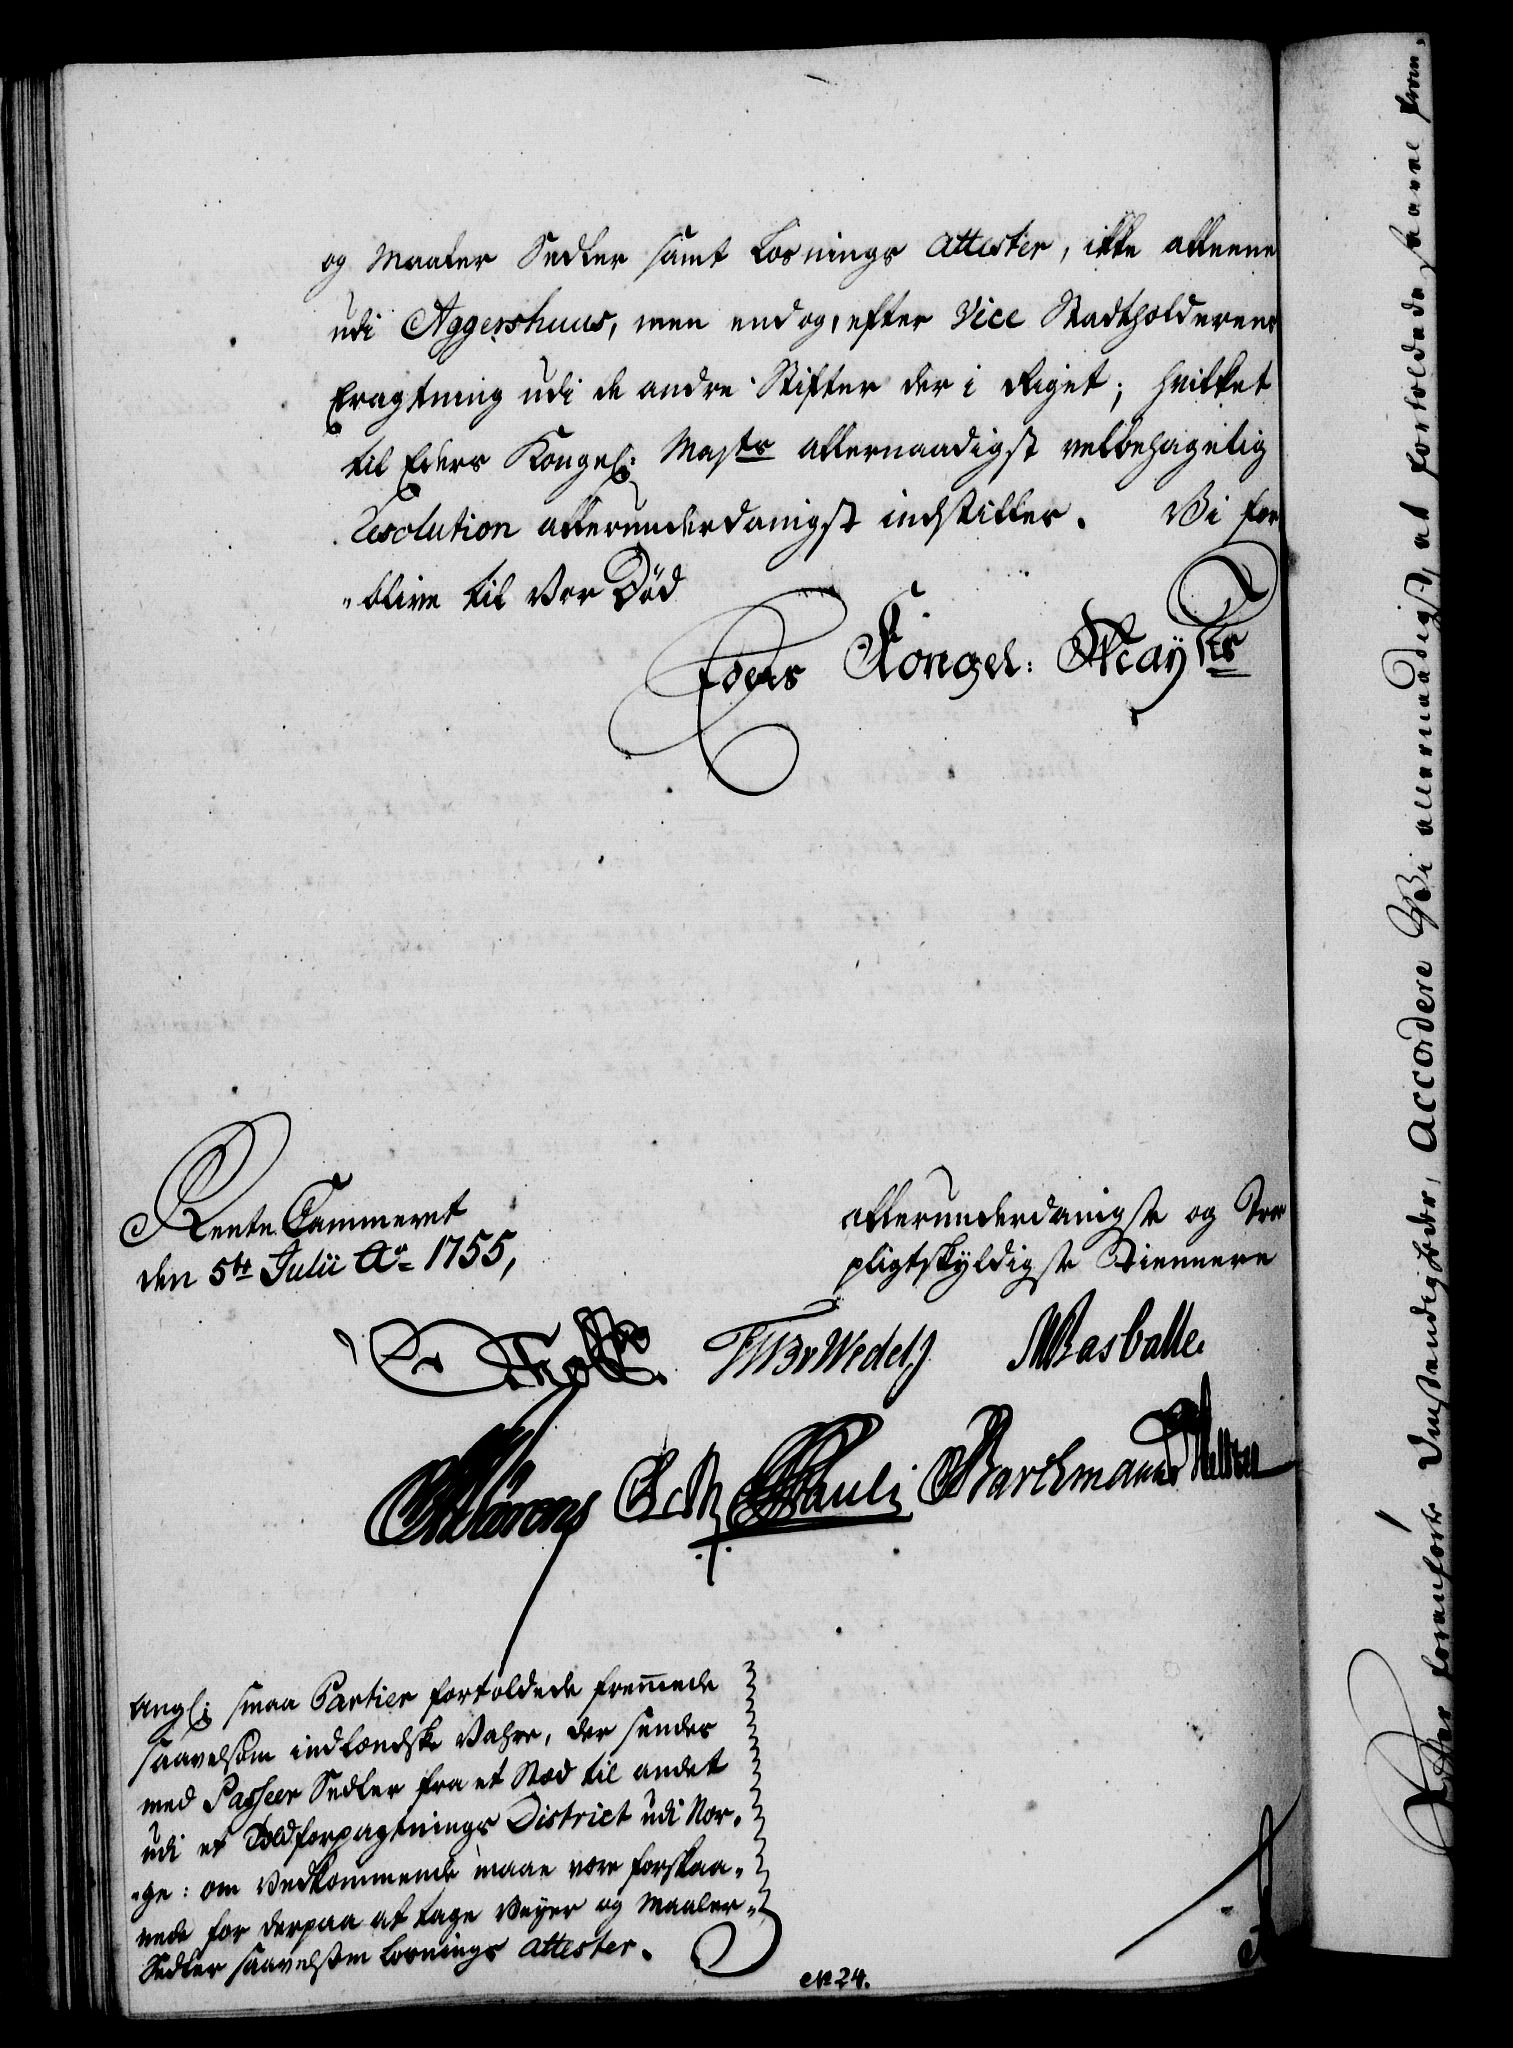 og Maaler Sedler samt Losnings Attester, ikke alleene
udi Aggershuus, men endog, efter Vice Stadtholderens
Eragtning udi de andre Stifter der i Riget; hvilket
til Eders Kongel: Mayts allernaadigst velbehagelig
Resolution allerunderdanigst indstilles. Vi for
"blive til Vor Død
Eders Kongel: Mayts
Rente Cammeret
den 5te Julii Ao 1755,
allerunderdanigste og Troe
pligtskyldigste Tiennere
Holst. Wedel Basballe.
Pauli Barchmann
Angl: smaa Partier fortoldede fremmede
saavelsom indlændske Vahre, der sendes
med Passeer Sedler fra et Stæd til andet
udi et Toldforpagtnings District udi Nor,
"ge: om Vedkommende maae være forskaa,
nede for derpaa at tage Veyer og Maaler,
Sedler saavelsom Losnings Attester.
No 24.
Efter foranførte Omstændigheder, Accordere Vi allernaadigst, at fortoldede saavel frem,